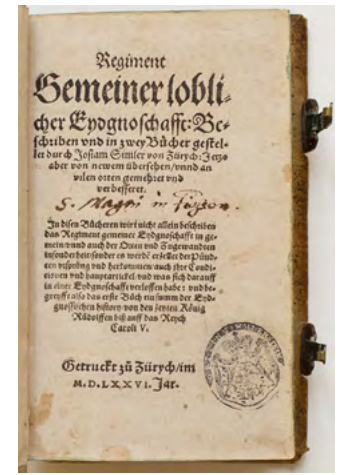 Regiment
Gemeiner lobli-
cher Eydgnoschafft: Be-
schriben vnd in zwey Bücher gestel-
let durch Josiam Simler von Zürych: Jetz
aber von newem übersehen/vnnd an
vilen orten gemehret vnd
verbesseret.
S. Magni in
In disen Bücheren wirt nicht allein beschriben
das Regiment gemeiner Eydgnoschafft in ge-
mein/vnnd auch der Orten vnd Zugewandten
insonderheit/sonder es werdē erzellet der Pünd-
ten vrsprung vnd herkommen/auch jhre Condi-
tionen vnd hauptartickel/vnd was sich darauff
in einer Eydgnoschafft verloffen habe: vnd be-
greyfft also das erste Buch ein summ der Eyd-
gnossischen history/von den zeyten König
Rudolffen biß auff das Reych
Caroli V.
Getruckt zů Zürych/im
M.D.LXXVI. Jar.